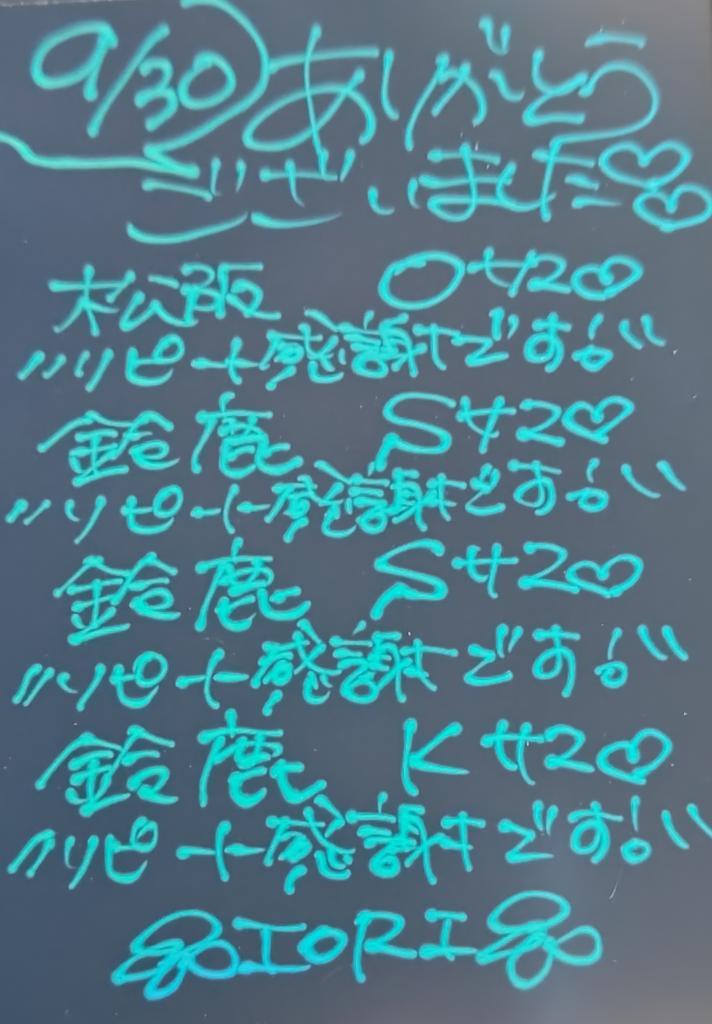 9/30 ありがとう
ございました♡♡
松阪 Oサマ♡
〃リピート感謝です!〃
鈴鹿 Sサマ♡
〃リピート感謝です!〃
鈴鹿 Sサマ♡
〃リピート感謝です!〃
鈴鹿 Kサマ♡
〃リピート感謝です!〃
IORI